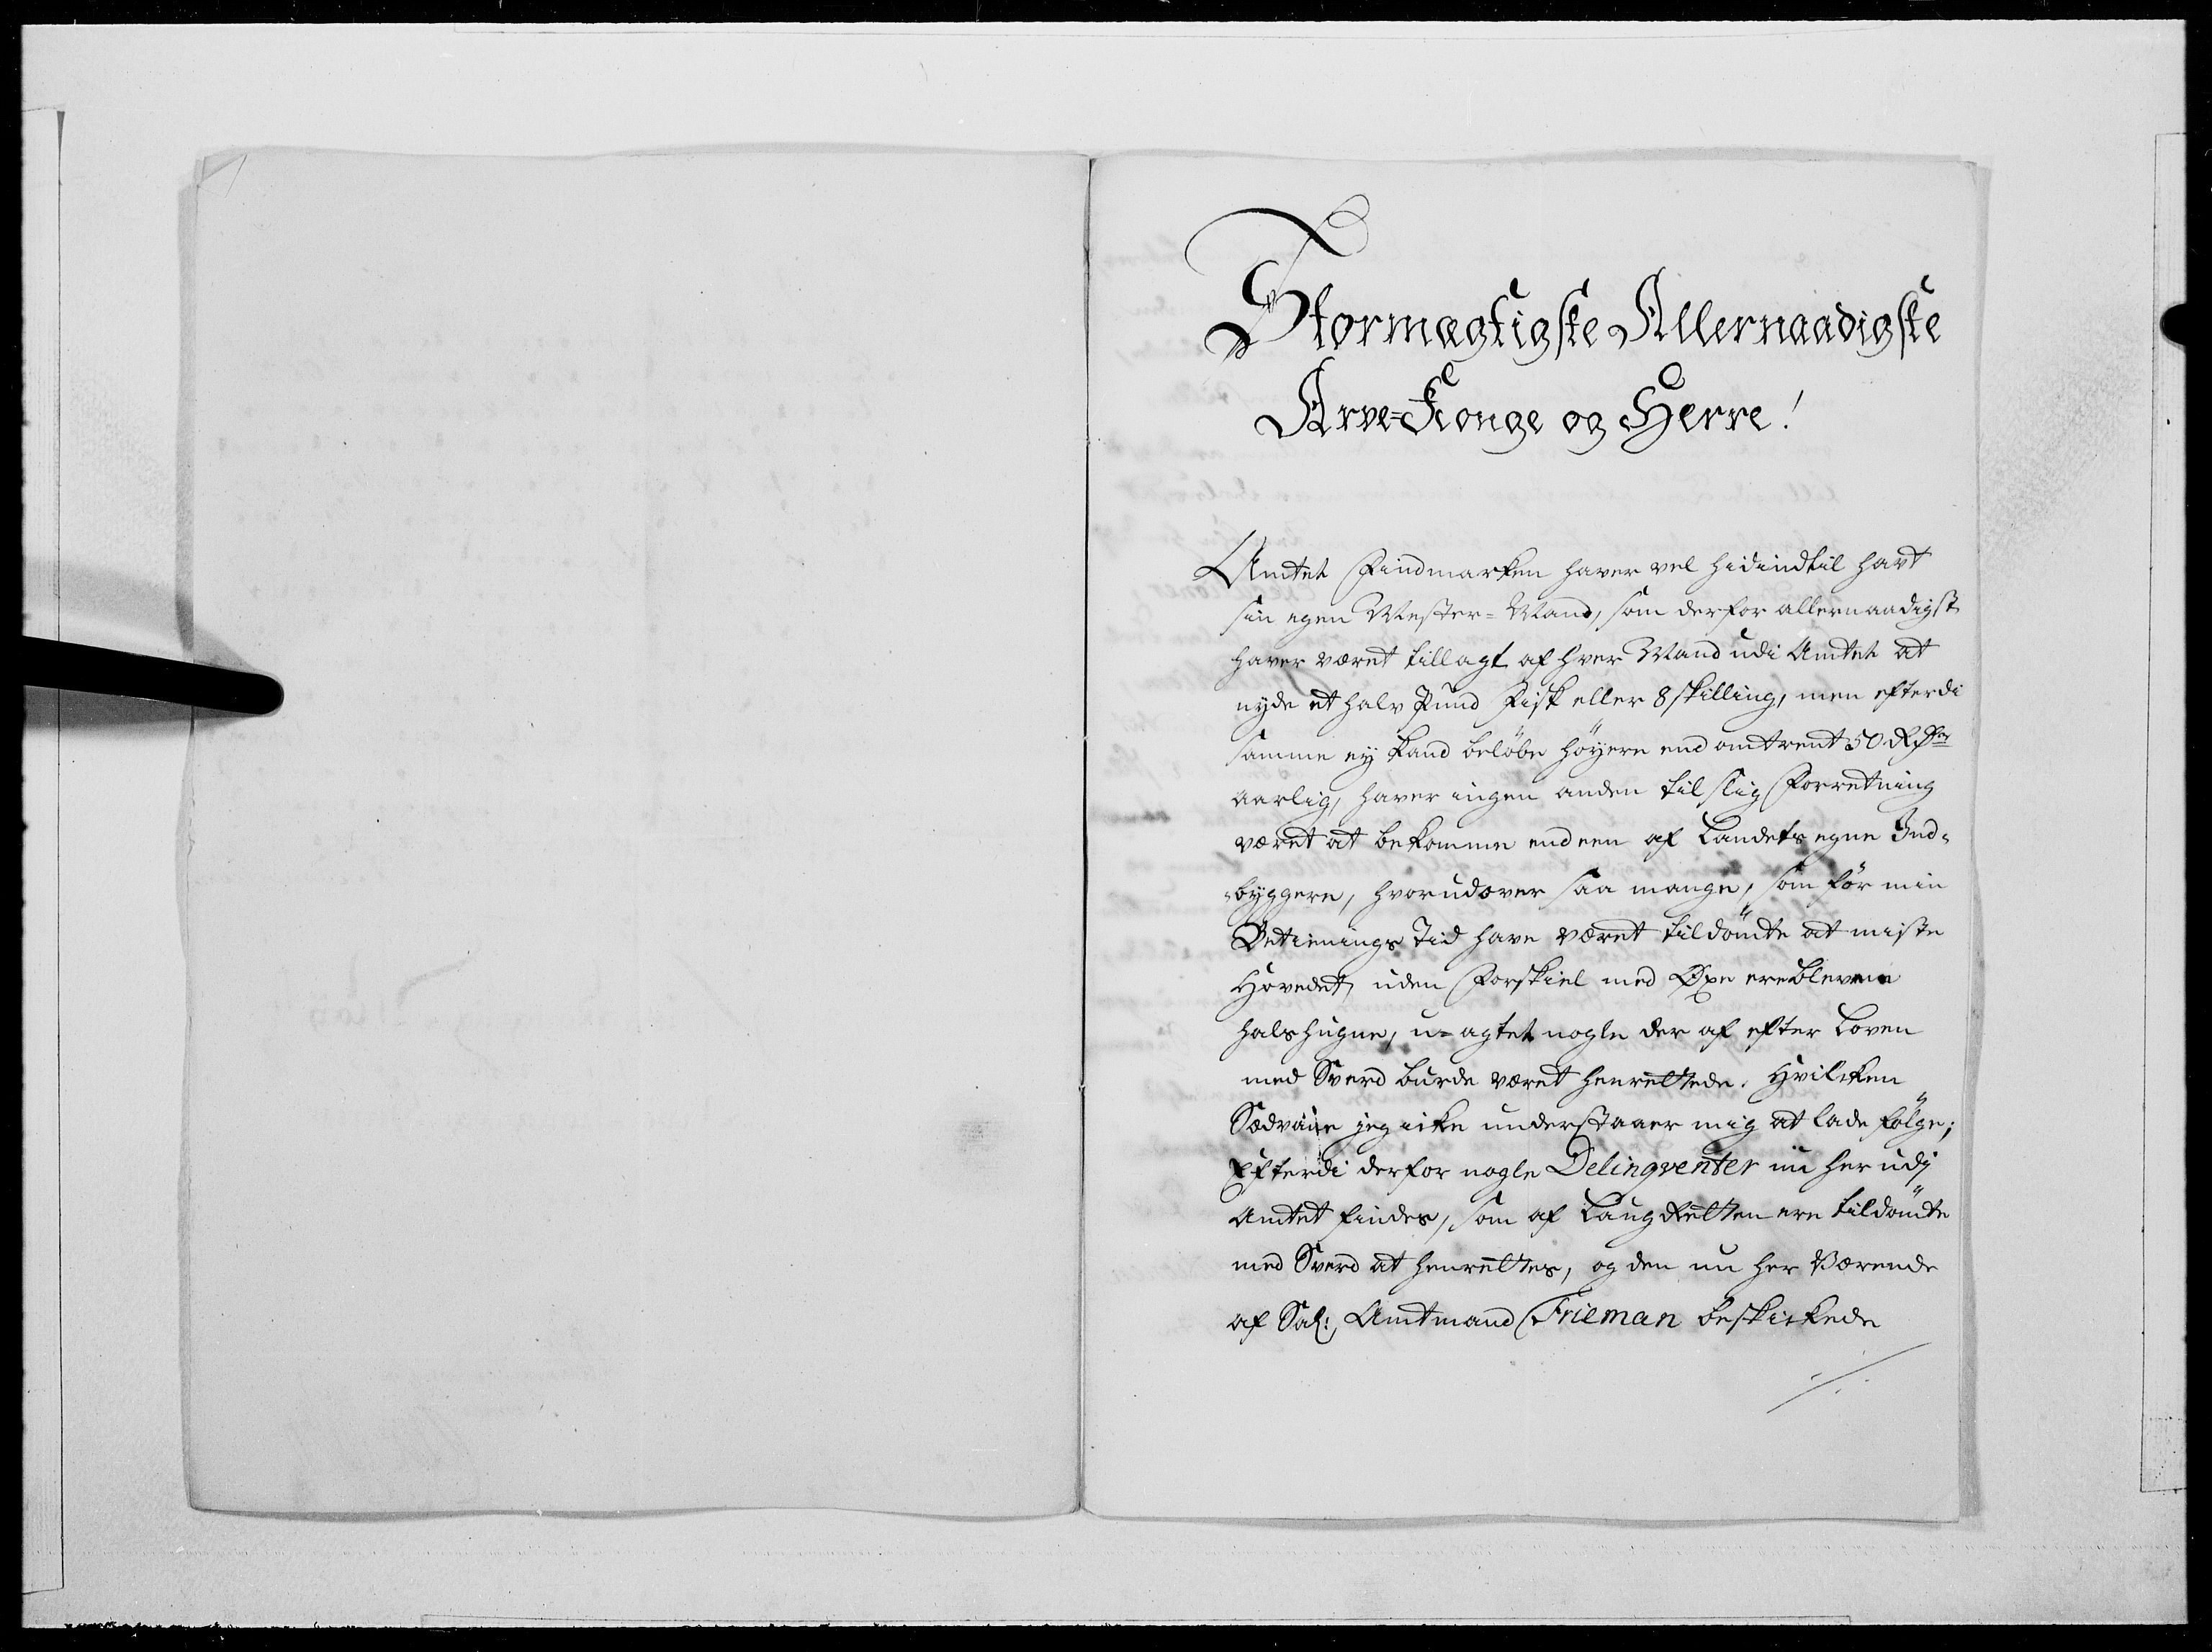 Stormægtigste Allernaadigste
Arve-Konge og Herre!
Amtet Findmarken haver vel hidindtil havt
sin egen Mester-Mand, som derfor allernaadigst
haver været tillagt af hver Mand udi Amtet at
nyde et halv Pund Fisk eller 8 skilling, men efterdi
samme ey kand beløbe høyere end omtrent 50 Rdr
aarlig, haver ingen anden til slig Forretning
været at bekomme end een af Landets egne Ind-
byggere, hvorudover saa mange, som før min
Betienings Tid have været tildømte at miste
Hovedet, uden Forskiel med Øxe ere blevene
halshugne, u-agtet nogle der af efter Loven
med Sverd burde været henrettede. Hvilcken
Sædvane jeg icke understaaer mig at lade følge;
Efterdi derfor nogle Delinqventer nu her udj
Amtet findes, som af LaugRetten ere tildømte
med Sverd at henrettes, og den nu her Værende
af Sal: Amtmand Frieman beskickede